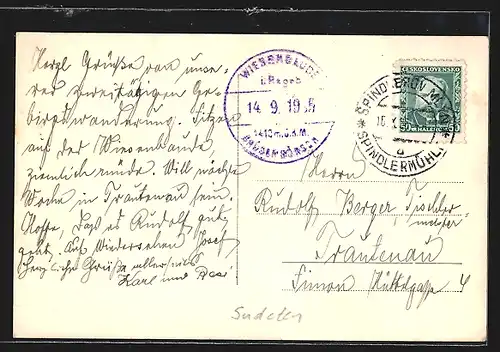 Herzl. Grüße von unse-
rer zweitägigen Ge-
birgswanderung. Sitzen
auf der Wiesenbaude
ziemlich müde. Will nächste
Woche in Trautenau sein.
Hoffe, daß es Rudolf gut
geht. Auf Wiedersehen Josef
Herzliche Grüße
Karl und
WIESENBAUDE
i. Rsgeb
14. 9. 19 5
1410 m.ü.d.M.
ČESKOSLOVENSKO
50 HALÉŘŮ 50
SPINDLERŮV MLÝN
SPINDLERMÜHLE
Herrn
Rudolf Berger Tischler-
meister
Trautenau
Simon Hüttelgasse 4
Sudeten